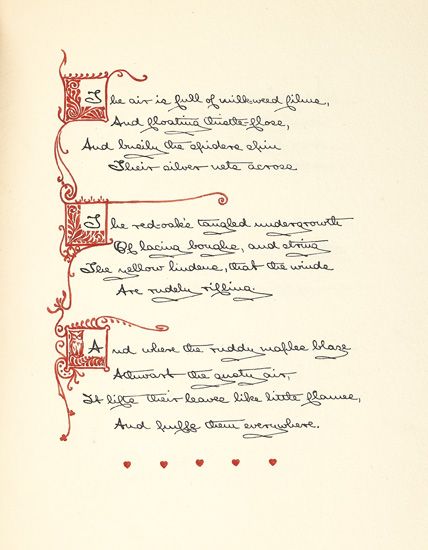 The air is full of milk-weed films,
And floating thistle-floss,
And busily the spiders spin
Their silver nets across
The red-oak's tangled undergrowth
Of lacing boughs, and string
The yellow lindens, that the winds
Are rudely rifling.
And where the ruddy maples blaze
Athwart the gusty air,
It lifts their leaves like little flames,
And puffs them everywhere.